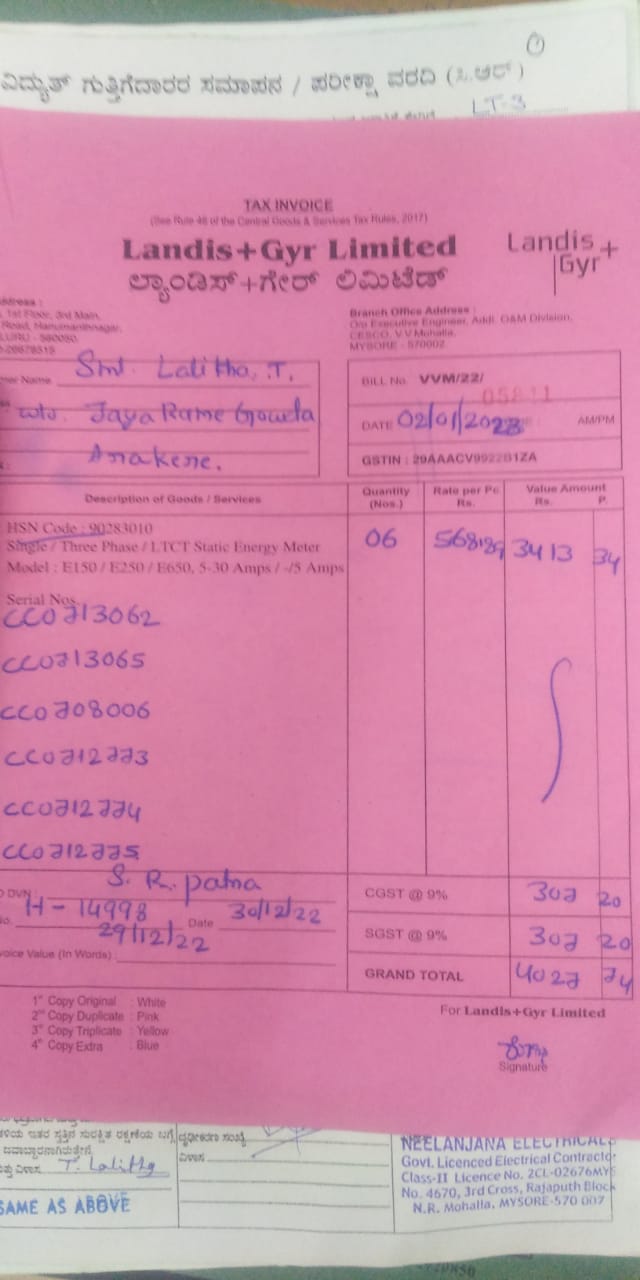 ವಿದ್ಯುತ್ ಗುತ್ತಿಗೆದಾರರ ಸಮಾಪನ / ಪರೀಕ್ಷಾ ವರದಿ (ಸಿ.ಆರ್)
LT-3
TAX INVOICE
(See Rule 46 of the Central Goods & Services Tax Rules, 2017)
Landis+Gyr Limited
Landis+
Gyr
ಲ್ಯಾಂಡಿಸ್+ಗೇರ್ ಲಿಮಿಟೆಡ್
ddress :
1st Floor, 3rd Main,
Road, Hanumanthnagar,
LURU - 560050.
26678515
Branch Office Address :
O/o Executive Engineer, Addl. O&M Division,
CESCO, V.V.Mohalla,
MYSORE - 570002
mer Name Smt. Lalitha. T.
w/o. Jaya Rame Gowda
Anakene.
BILL No. VVM/22/
05811
DATE 02/01/2023 AM/PM
GSTIN : 29AAACV9922B1ZA
Description of Goods / Services Quantity (Nos.) Rate per Pc Rs. Value Amount Rs. P.
HSN Code : 90283010
Single / Three Phase / LTCT Static Energy Meter
Model : E150 / E250 / E650, 5-30 Amps / -/5 Amps
06 568.89 3413 34
Serial Nos.
CC0713062
CC0713065
CC0708006
CC0712773
CC0712774
CC0712775
DVN : S. R. patna
No. H-14998 Date 30/12/22
29/12/22
voice Value (In Words) :
CGST @ 9% 307 20
SGST @ 9% 307 20
GRAND TOTAL 4027 74
1st Copy Original : White
2nd Copy Duplicate : Pink
3rd Copy Triplicate : Yellow
4th Copy Extra : Blue
For Landis+Gyr Limited
Signature
T. Lalitha
SAME AS ABOVE
ವಿಳಾಸ
NEELANJANA ELECTRICALS
Govt. Licenced Electrical Contractor
Class-II Licence No. 2CL-02676MYS
No. 4670, 3rd Cross, Rajaputh Block
N.R. Mohalla, MYSORE-570 007